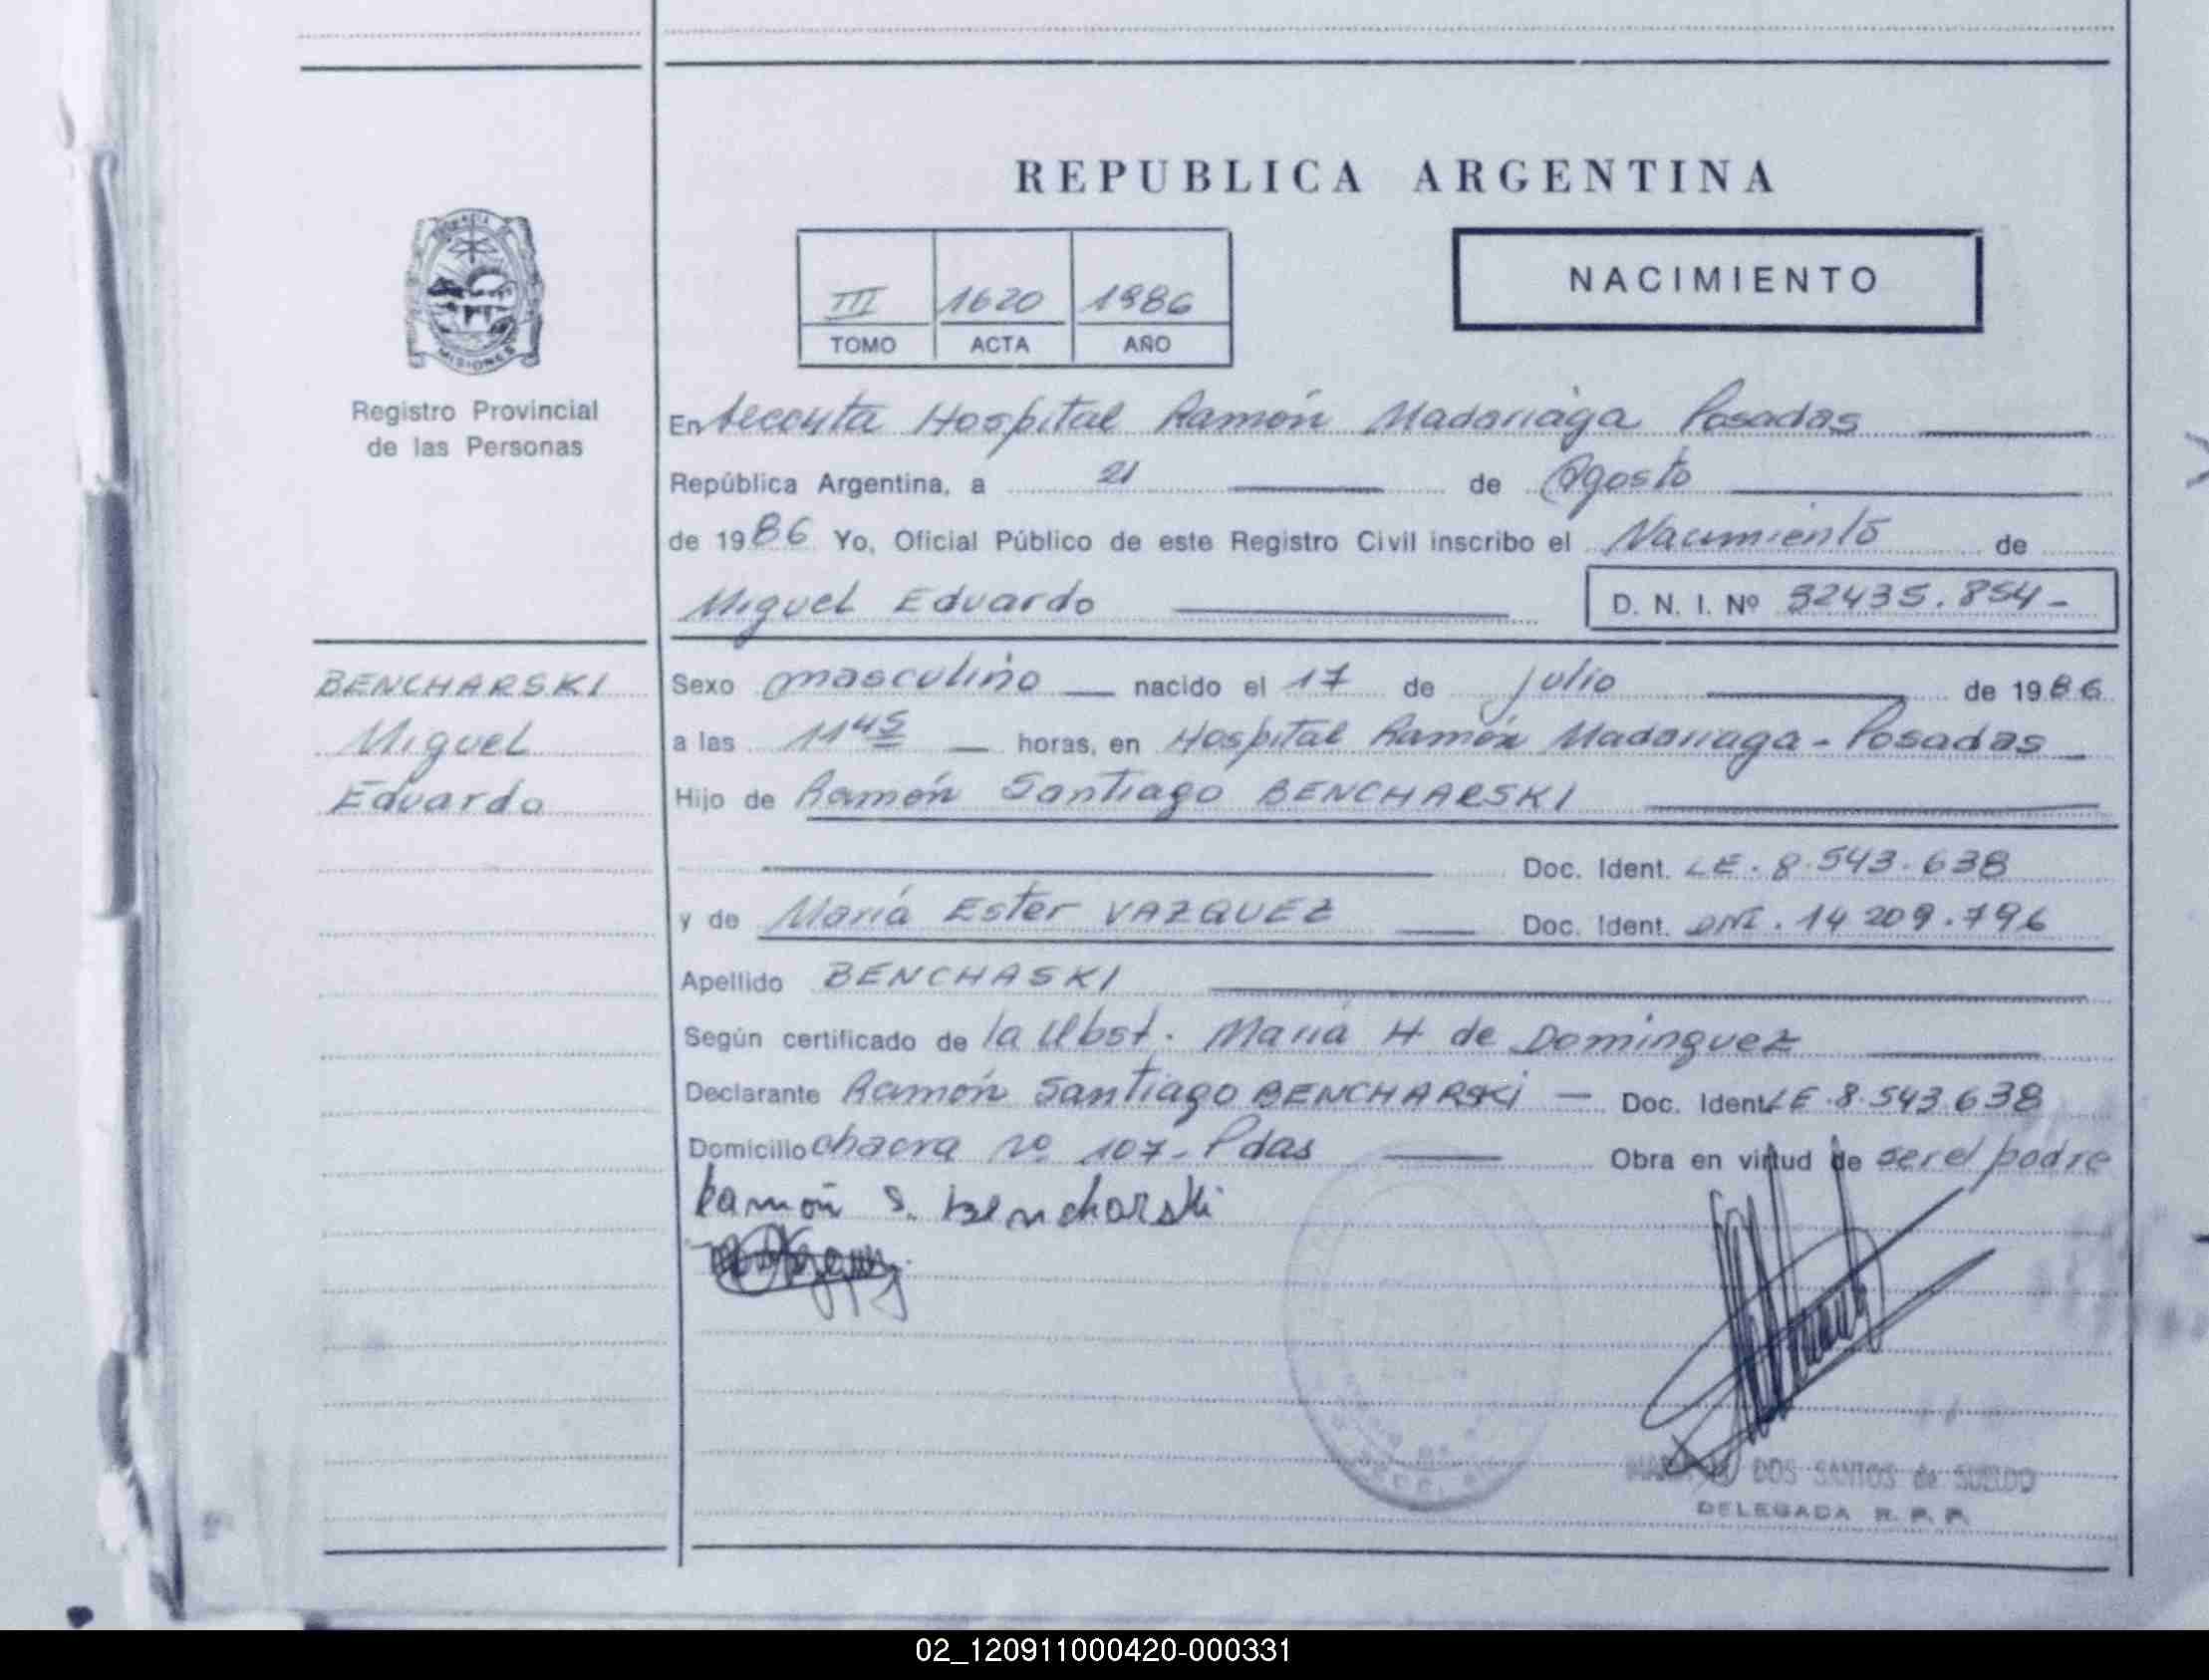 REPUBLICA ARGENTINA
NACIMIENTO
III 1620 1986
TOMO ACTA AÑO
MISIONES
Registro Provincial
de las Personas
En Hospital Ramón Madariaga Posadas
República Argentina, a 21 de Agosto
de 1986 Yo, Oficial Público de este Registro Civil inscribo el Nacimiento de
Miguel Eduardo
D. N. I. Nº 32435.854-
BENCHARSKI
Miguel
Eduardo
Sexo masculino nacido el 17 de julio de 1986
a las 11 45 horas, en Hospital Ramón Madariaga - Posadas
Hijo de Ramón Santiago BENCHARSKI
Doc. Ident. LE. 8.543.638
y de María Ester VAZQUEZ Doc. Ident. DNI. 14 209.796
Apellido BENCHASKI
Según certificado de la Obst. María H de Dominguez
Declarante Ramón Santiago BENCHARSKI Doc. Ident. LE 8.543.638
Domicilio chacra Nº 107- Pdas Obra en virtud de ser el padre
Ramón S. Bencharski
DOS SANTOS de SUELDO
DELEGADA R. P. P.
02_120911000420-000331